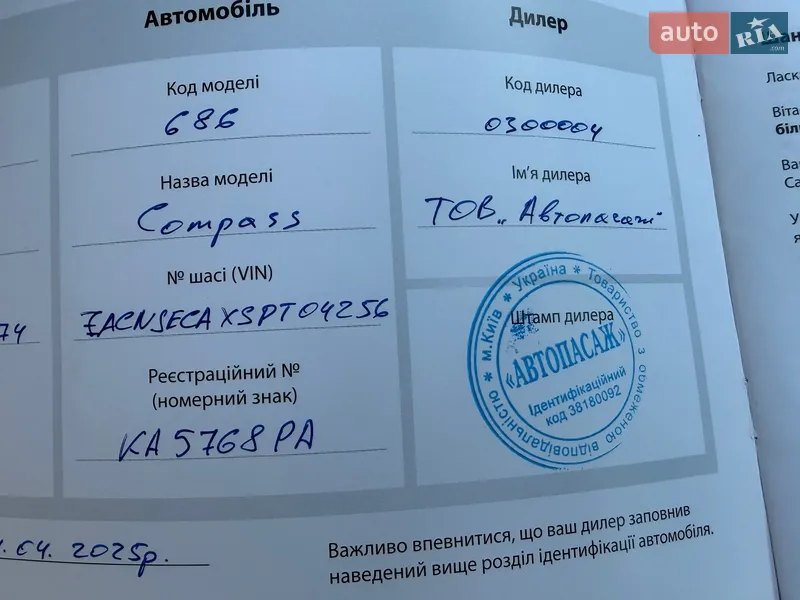 Автомобіль
Дилер
auto RIA
.com
Код моделі
686
Код дилера
0300004
Назва моделі
Compass
Ім'я дилера
ТОВ „Автопасаж"
№ шасі (VIN)
ZACNSECAXSPT04256
Штамп дилера
* м.Київ * Україна * Товариство з обмеженою відповідальністю
«АВТОПАСАЖ»
Ідентифікаційний
код 38180092
74
Реєстраційний №
(номерний знак)
КА 5768 РА
04. 2025р.
Важливо впевнитися, що ваш дилер заповнив
наведений вище розділ ідентифікації автомобіля.
Ласк
Віта
біль
Ва
Са
У
я